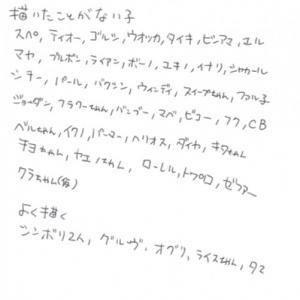 描いたことがない子
スペ, テイオー, ゴルシ, ウオッカ, タイキ, ビアマ, エル
マヤ, ブルボン, ライアン, ボーノ, ユキノ, イナリ, シャカール
シチー, パール, バクシン, ウィンディ, スイープちゃん, ファル子
ジョーダン, フラワーちゃん, バンブー, マベ, ビコー, フク, CB
ベルちゃん, イクノ, パーマー, ヘリオス, ダイヤ, キタちゃん
チヨちゃん, ヤエノさん, ローレル, トプロ, ゼファー
クラちゃん(仮)
よく描く
シンボリ2人, グルーヴ, オグリ, ライスちゃん, タマ